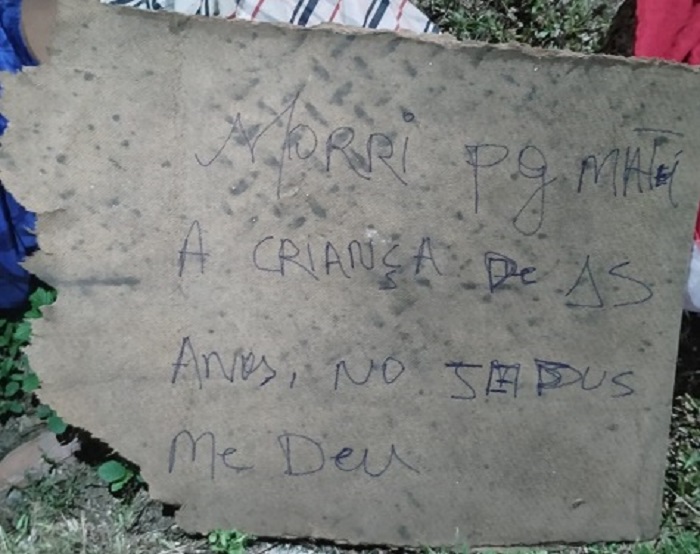 MORRI Pq MATEi
A CRIANÇA De 15
ANOS, NO
Me Deu